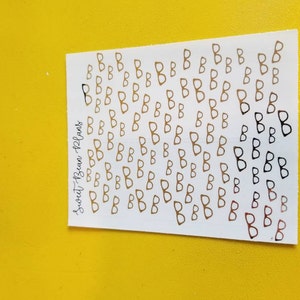 Sweet Bean Plans